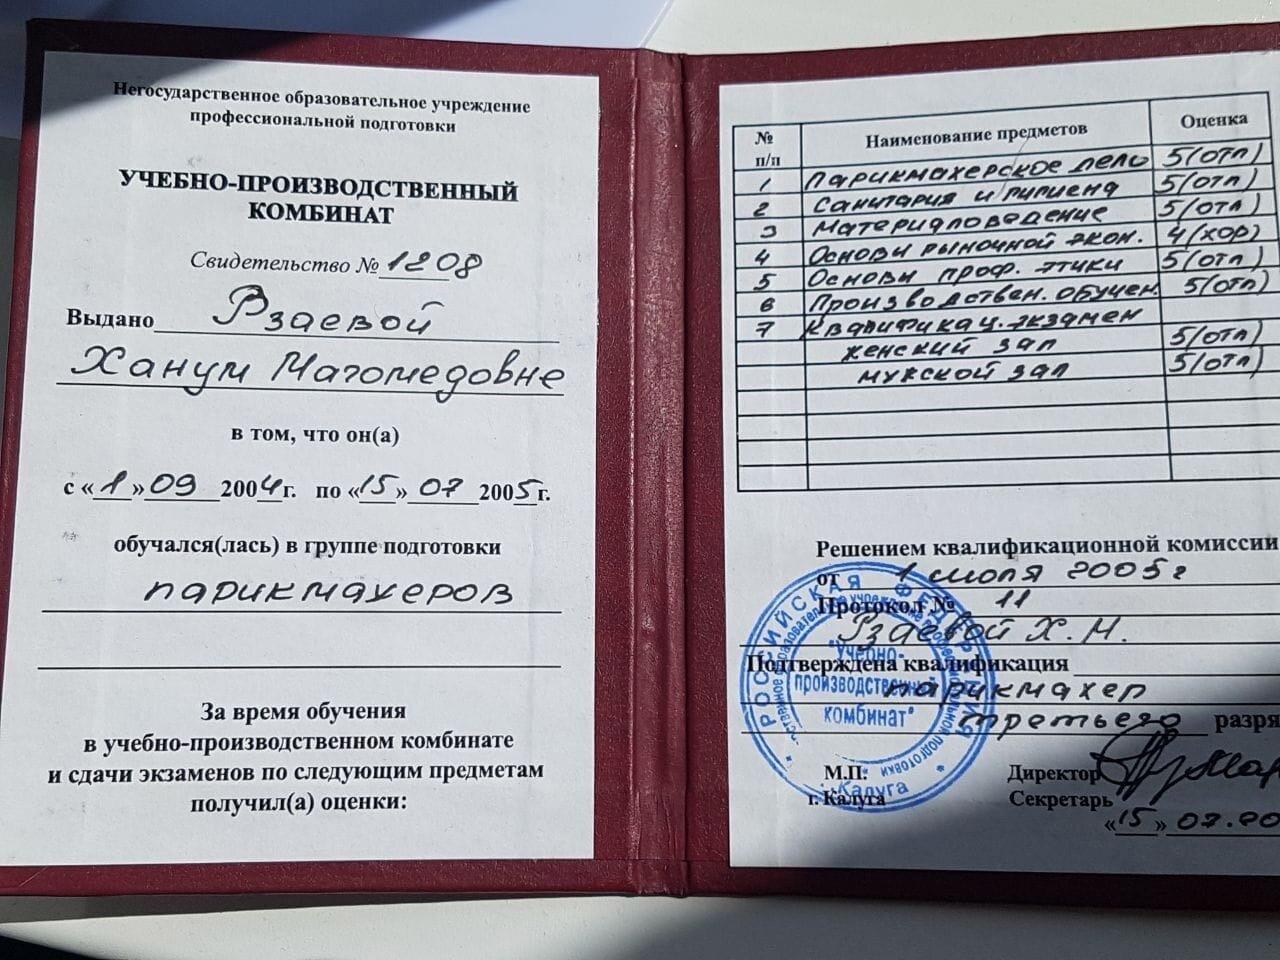 Негосударственное образовательное учреждение
профессиональной подготовки
УЧЕБНО-ПРОИЗВОДСТВЕННЫЙ
КОМБИНАТ
Свидетельство № 1208
Выдано Рзаевой
Ханум Магомедовне
в том, что он(а)
с «1» 09 2004г. по «15» 07 2005г.
обучался(лась) в группе подготовки
парикмахеров
За время обучения
в учебно-производственном комбинате
и сдачи экзаменов по следующим предметам
получил(а) оценки:
№ п/п Наименование предметов Оценка
1 Парикмахерское дело 5(отл)
2 Санитария и гигиена 5(отл)
3 Материаловедение 5(отл)
4 Основы рыночной экон. 4(хор)
5 Основы проф. этики 5(отл)
6 Производствен. обучен. 5(отл)
7 Квалификац. экзамен
женский зал 5(отл)
мужской зал 5(отл)
Решением квалификационной комиссии
от 1 июля 2005г
Протокол № 11
Рзаевой Х.М.
Подтверждена квалификация
парикмахер
третьего разря
М.П. Директор
г. Калуга Секретарь
«15» 07.20
РОССИЙСКАЯ ФЕДЕРАЦИЯ
"Учебно-
производственный
комбинат"
г. Калуга